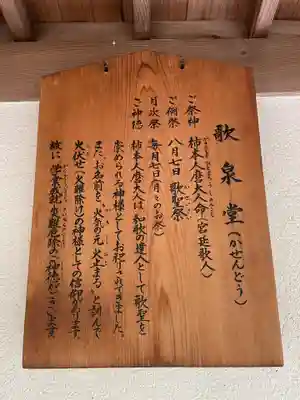 歌泉堂(かせんどう)
ご祭神 柿本人麿大人命(宮廷歌人)
ご例祭 八月七日 歌聖祭
月次祭 毎月七日(月々のお祭)
ご神徳 柿本人麿大人は和歌の達人として歌聖と
崇められる神様としてお祀りされてきました。
また、お名前を、火気の元、火止まる、と訓んで
火伏せ(火難除け)の神様としての信仰があります。
故に 学業成就 火難厄除の御神徳がございます